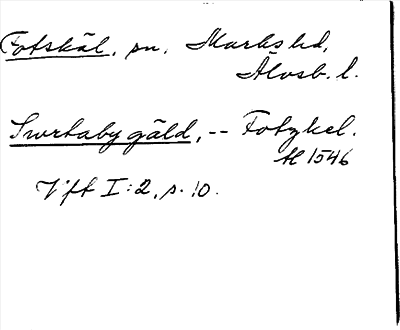 Fotskäl, sn, Marks hd,
Älvsb. l.
Swrtaby gäld, -- Fotzkel.
H 1546
Vft I:2, s. 10.